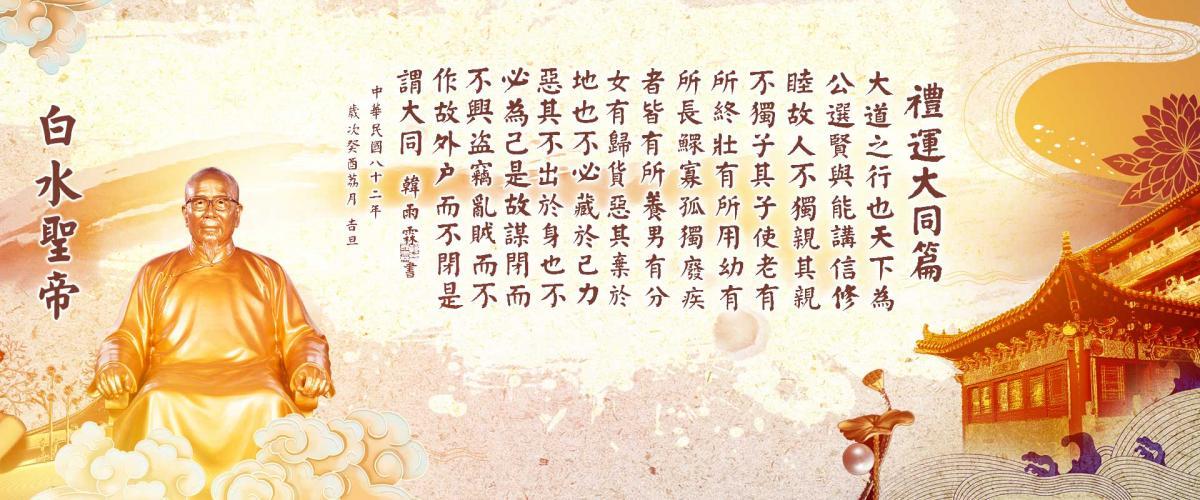 禮運大同篇
大道之行也天下為
公選賢與能講信修
睦故人不獨親其親
不獨子其子使老有
所終壯有所用幼有
所長鰥寡孤獨廢疾
者皆有所養男有分
女有歸貨惡其棄於
地也不必藏於己力
惡其不出於身也不
必為己是故謀閉而
不興盜竊亂賊而不
作故外户而不閉是
謂大同 韓雨霖書
中華民國八十二年
歲次癸酉荔月 吉旦
白水聖帝